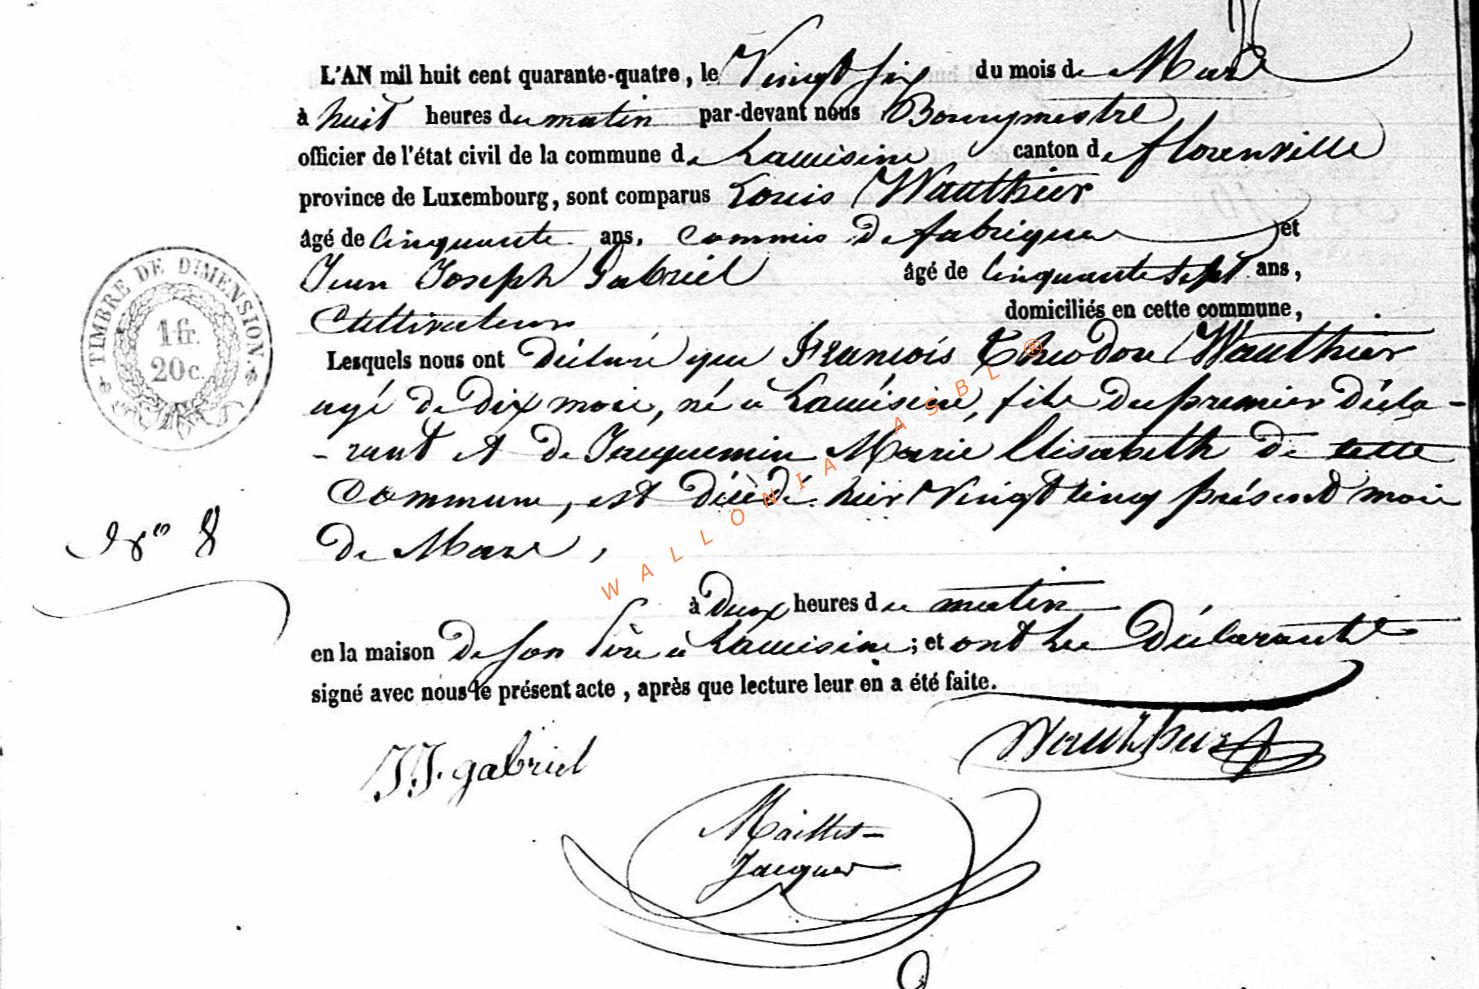 L'AN mil huit cent quarante-quatre, le Vingt six du mois de Mars
à huit heures du matin par-devant nous Bourgmestre
officier de l'état civil de la commune de Lacuisine canton de florenville
province de Luxembourg, sont comparus Louis Wauthier
âgé de Cinquante ans, Commis de fabrique et
Jean Joseph Gabriel âgé de Cinquante sept ans,
Cultivateur domiciliés en cette commune,
Lesquels nous ont Déclaré que François Théodore Wauthier
agé de dix mois, né à Lacuisine, fils du premier Décla-
-rant et de Jacquemin Marie Elisabeth de cette
Commune, est décédé hier Vingt cinq présent mois
de Mars,
N° 8
à Deux heures du matin
en la maison de son Père à Lacuisine; et ont les Déclarants
signé avec nous le présent acte, après que lecture leur en a été faite.
JJ. gabriel
Wauthier
Maillet-
Jacques
TIMBRE DE DIMENSION.
1 fr.
20 c.
WALLONIA ASBL ®